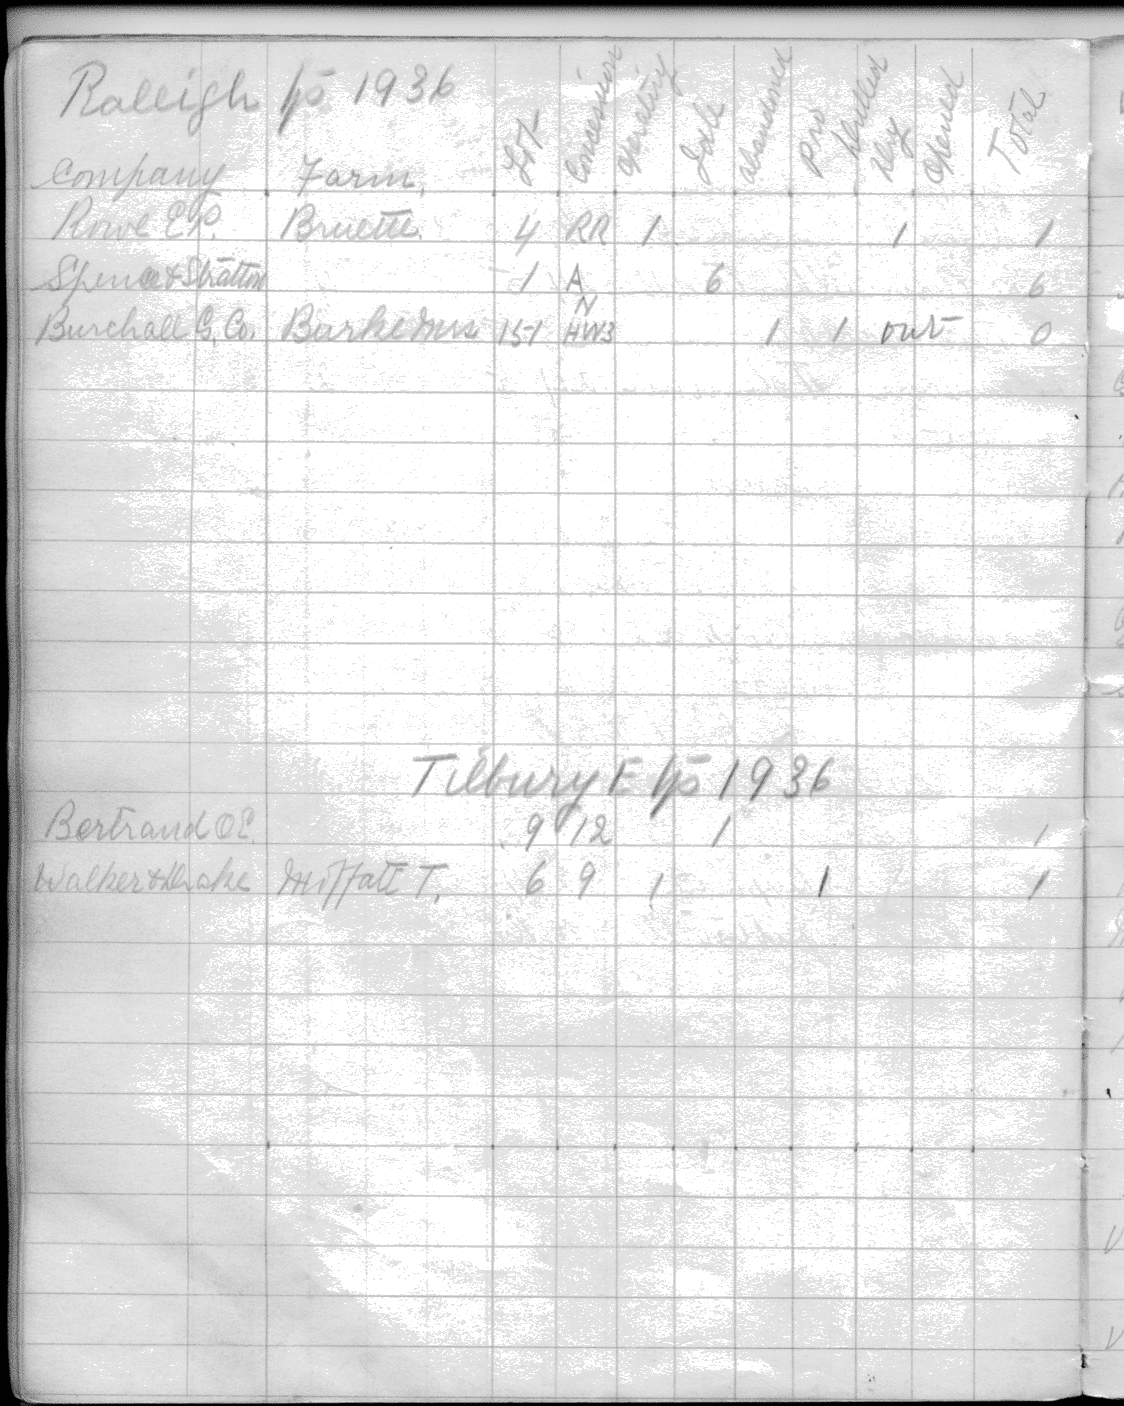 Raleigh tp 1936
Company Farm. Lot Concession operating Idle abandoned pro drilled dry opened Total
Rowe E.P. Bruette. 4 RR 1 1 1
Spence & Stratton 1 A 6 6
Burchall G. Co. 151 N HW3 1 1 out 0
Tilbury E tp 1936
Bertrand O E. 9 12 1 1
Walker & Drake Moffatt T. 6 9 1 1 1